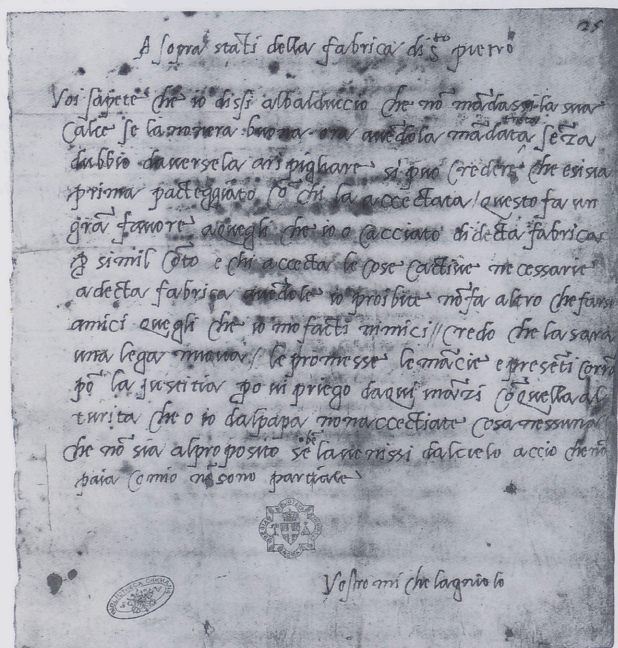 25
A sopra stati della fabrica di s.to pietro
Voi sapete che io dissi al balduccio che nō mādassi la sua
calce se la nonera buona ora avēdola mādata trista sēza
dubbio daversela a ri pigliare si puo credere che e si sia
prima pacteggiato cō chi la accectata / questo fa un
grā favore a quegli che io o cacciato di decta fabrica
p simil cōto e chi accecta le cose cactive necessarie
a decta fabrica avēdole io proibite nō fa altro che farsi
amici quegli che io mo facti inimici // credo che la sara
una lega nuova // le promesse le mācie e presēti corrō
pō la justitia po vi priego da qui ināzi cō quella al
turita che o io dal papa non accectiate cosa nessuna
che nō sia al proposito se be la venissi dal cielo accio che nō
paia comio nō sono partiale
Vostro michelagniolo